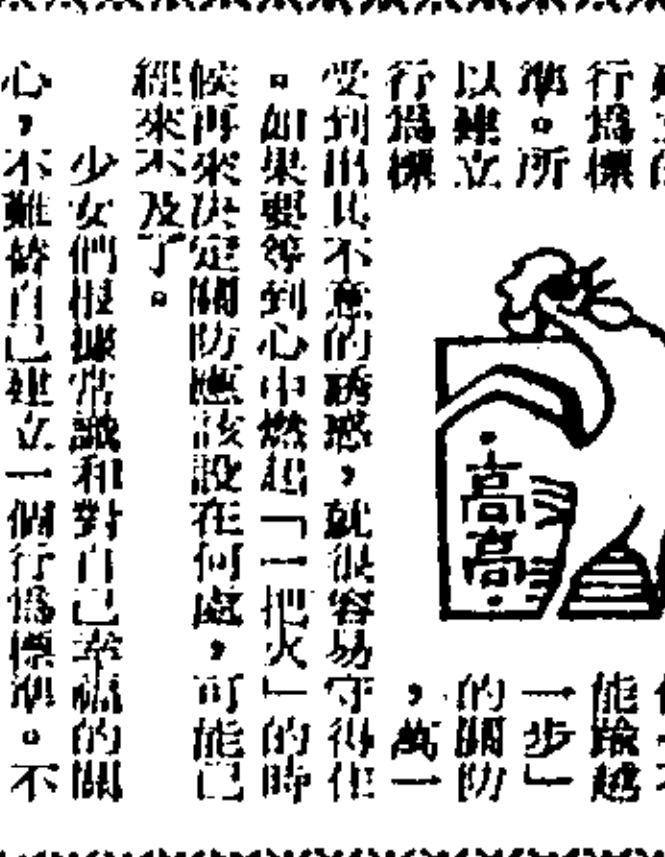 行為標
準。所
以建立
行為標
高高
能踰越
一步」
的關防
，萬一
受到出其不意的誘惑，就很容易守得住
。如果要等到心中燃起「一把火」的時
候再來决定關防應該設在何處，可能已
經來不及了。
少女們根據常識和對自己幸福的關
心，不難替自己建立一個行為標準。不